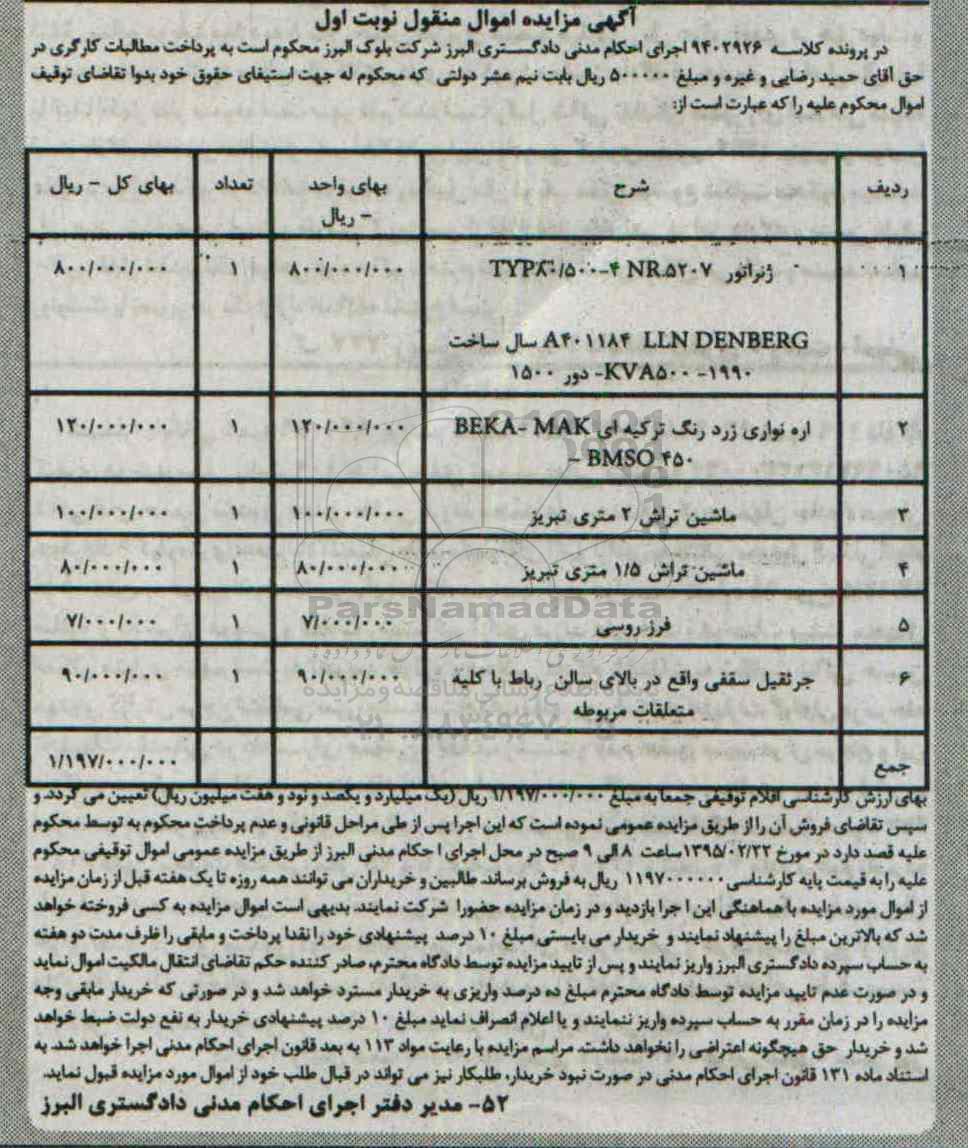 آگهی مزایده اموال منقول نوبت اول
در پرونده کلاسه ۹۴۰۲۹۲۶ اجرای احکام مدنی دادگستری البرز شرکت بلوک البرز محکوم است به پرداخت مطالبات کارگری در
حق آقای حمید رضایی و غیره و مبلغ ۵۰۰۰۰۰ ریال بابت نیم عشر دولتی که محکوم له جهت استیفای حقوق خود بدوا تقاضای توقیف
اموال محکوم علیه را که عبارت است از:
ردیف شرح بهای واحد تعداد بهای کل - ریال
- ریال
۱ ژنراتور TYP۸۰/۵۰۰-۴ NR.۵۲۰۷ ۸۰۰/۰۰۰/۰۰۰ ۱ ۸۰۰/۰۰۰/۰۰۰
A۴۰۱۱۸۴ LLN DENBERG سال ساخت
۱۹۹۰- KVA۵۰۰- دور ۱۵۰۰
۲ اره نواری زرد رنگ ترکیه ای BEKA- MAK ۱۲۰/۰۰۰/۰۰۰ ۱ ۱۲۰/۰۰۰/۰۰۰
- BMSO ۴۵۰
۳ ماشین تراش ۲ متری تبریز ۱۰۰/۰۰۰/۰۰۰ ۱ ۱۰۰/۰۰۰/۰۰۰
۴ ماشین تراش ۱/۵ متری تبریز ۸۰/۰۰۰/۰۰۰ ۱ ۸۰/۰۰۰/۰۰۰
ParsNamadData
۵ فرز روسی ۷/۰۰۰/۰۰۰ ۱ ۷/۰۰۰/۰۰۰
۶ جرثقیل سقفی واقع در بالای سالن رباط با کلیه ۹۰/۰۰۰/۰۰۰ ۱ ۹۰/۰۰۰/۰۰۰
متعلقات مربوطه
جمع ۱/۱۹۷/۰۰۰/۰۰۰
بهای ارزش کارشناسی اقلام توقیفی جمعا به مبلغ ۱/۱۹۷/۰۰۰/۰۰۰ ریال (یک میلیارد و یکصد و نود و هفت میلیون ریال) تعیین می گردد. و
سپس تقاضای فروش آن را از طریق مزایده عمومی نموده است که این اجرا پس از طی مراحل قانونی و عدم پرداخت محکوم به توسط محکوم
علیه قصد دارد در مورخ ۱۳۹۵/۰۲/۲۲ ساعت ۸ الی ۹ صبح در محل اجرای ا حکام مدنی البرز از طریق مزایده عمومی اموال توقیفی محکوم
علیه را به قیمت پایه کارشناسی ۱۱۹۷۰۰۰۰۰۰ ریال به فروش برساند. طالبین و خریداران می توانند همه روزه تا یک هفته قبل از زمان مزایده
از اموال مورد مزایده با هماهنگی این ا جرا بازدید و در زمان مزایده حضورا شرکت نمایند. بدیهی است اموال مزایده به کسی فروخته خواهد
شد که بالاترین مبلغ را پیشنهاد نمایند و خریدار می بایستی مبلغ ۱۰ درصد پیشنهادی خود را نقدا پرداخت و مابقی را ظرف مدت دو هفته
به حساب سپرده دادگستری البرز واریز نمایند و پس از تایید مزایده توسط دادگاه محترم، صادر کننده حکم تقاضای انتقال مالکیت اموال نماید
و در صورت عدم تایید مزایده توسط دادگاه محترم مبلغ ده درصد واریزی به خریدار مسترد خواهد شد و در صورتی که خریدار مابقی وجه
مزایده را در زمان مقرر به حساب سپرده واریز ننمایند و یا اعلام انصراف نماید مبلغ ۱۰ درصد پیشنهادی خریدار به نفع دولت ضبط خواهد
شد و خریدار حق هیچگونه اعتراضی را نخواهد داشت. مراسم مزایده با رعایت مواد ۱۱۳ به بعد قانون اجرای احکام مدنی اجرا خواهد شد. به
استناد ماده ۱۳۱ قانون اجرای احکام مدنی در صورت نبود خریدار، طلبکار نیز می تواند در قبال طلب خود از اموال مورد مزایده قبول نماید.
۵۲- مدیر دفتر اجرای احکام مدنی دادگستری البرز